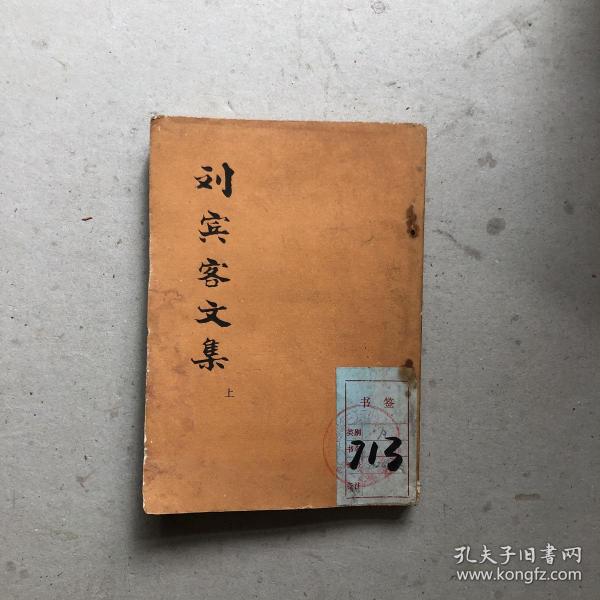 刘宾客文集
上
书签
类别
书
备注
713
孔夫子旧书网
www.kongfz.com